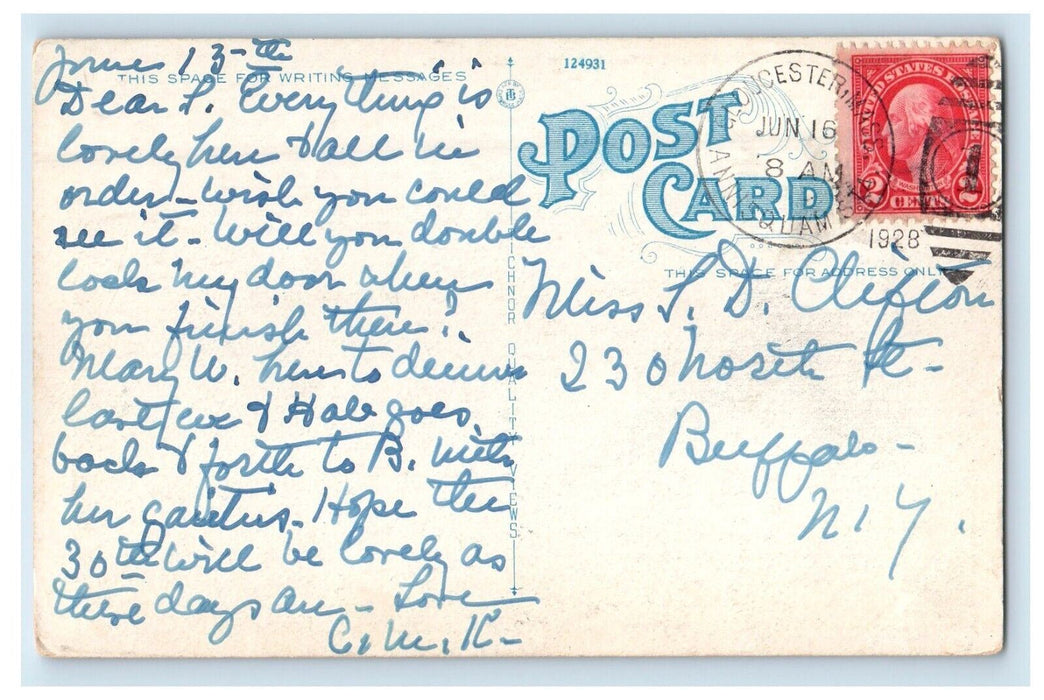 June 13th
THIS SPACE FOR WRITING MESSAGES
Dear L. Everything is
lovely here & all in
order - wish you could
see it - Will you double
lock my door when
you finish there?
Mary W. here to dinner
last eve & Hab goes
back & forth to B. with
her gaieties - Hope the
30th will be lovely as
these days are - Love
C. M. K -
TICHNOR QUALITY VIEWS
124931
POST CARD
GLOUCESTER, MASS
JUN 16
8 AM
1928
ANNISQUAM
UNITED STATES POSTAGE
WASHINGTON
2 CENTS 2
THIS SPACE FOR ADDRESS ONLY
Miss L. D. Clifton
230 North St -
Buffalo -
N. Y.